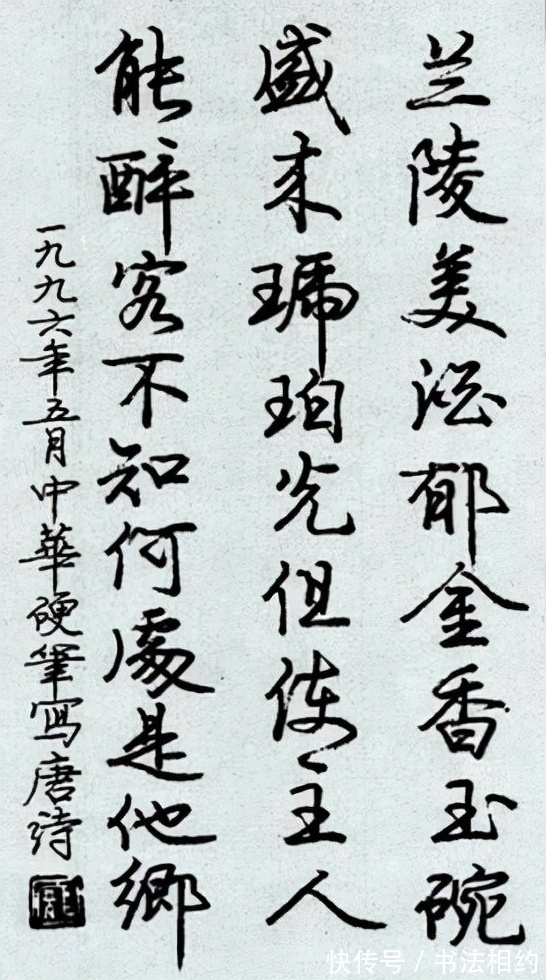 兰陵美酒郁金香玉碗
盛来琥珀光但使主人
能醉客不知何處是他鄉
一九九六年五月中華硬筆写唐诗
快传号/书法相约